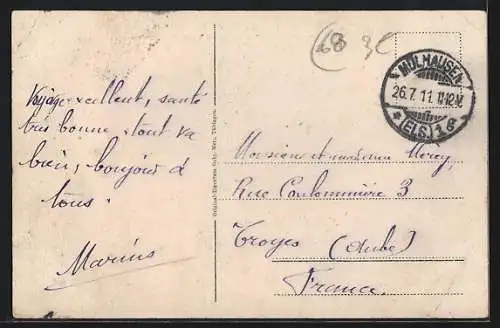 68 3c
MÜLHAUSEN
26.7.11. 11-12V.
* (ELS) 1 g
Voyage excellent, santé
très bonne, tout va
bien, bonjour à
tous.
Marius
Monsieur et madame Merey,
Rue Coulommière 3
Troyes (Aube)
France.